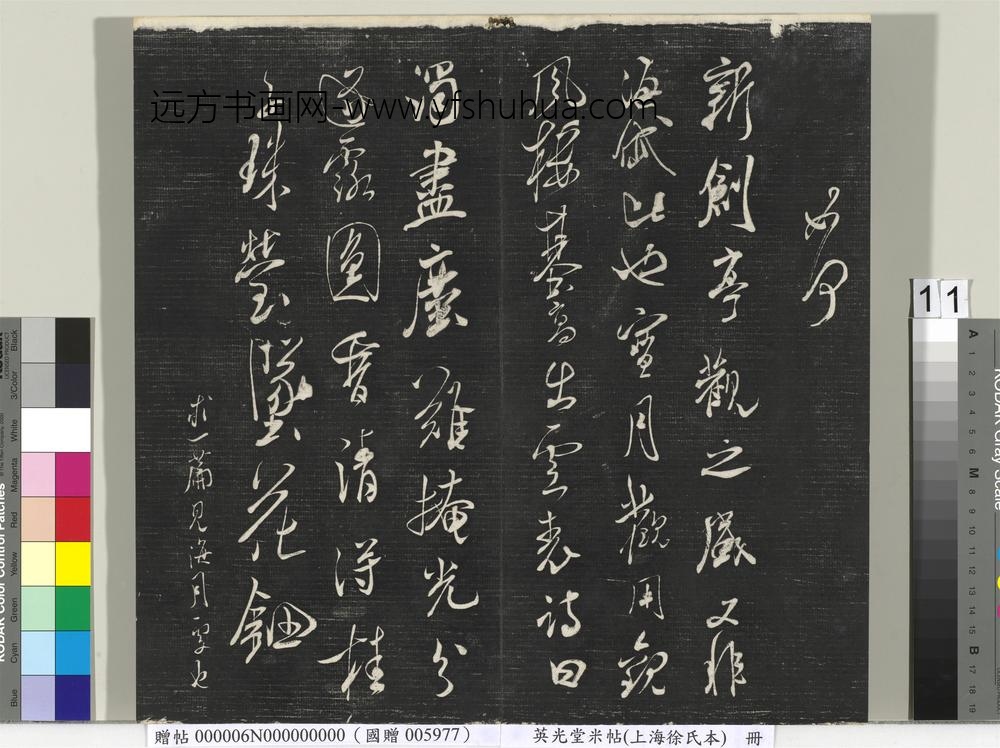 如何
新創亭觀之盛又非
海岱比也寶月觀用觀
風樓基高出雲表詩曰
濁盡塵難掩光分
露圓香清浮桂
珠瑩蠙花鈿
求一篇見海月
远方书画网-www.yfshuhua.com
贈帖 000006N000000000（國贈 005977）
英光堂米帖(上海徐氏本) 冊
11
KODAK Color Control Patches
Blue
Cyan
Green
Yellow
Red
Magenta
White
3/Color
Black
KODAK Gray Scale
A 1 2 3 4 5 6 M 8 9 10 11 12 13 14 15 B 17 18 19